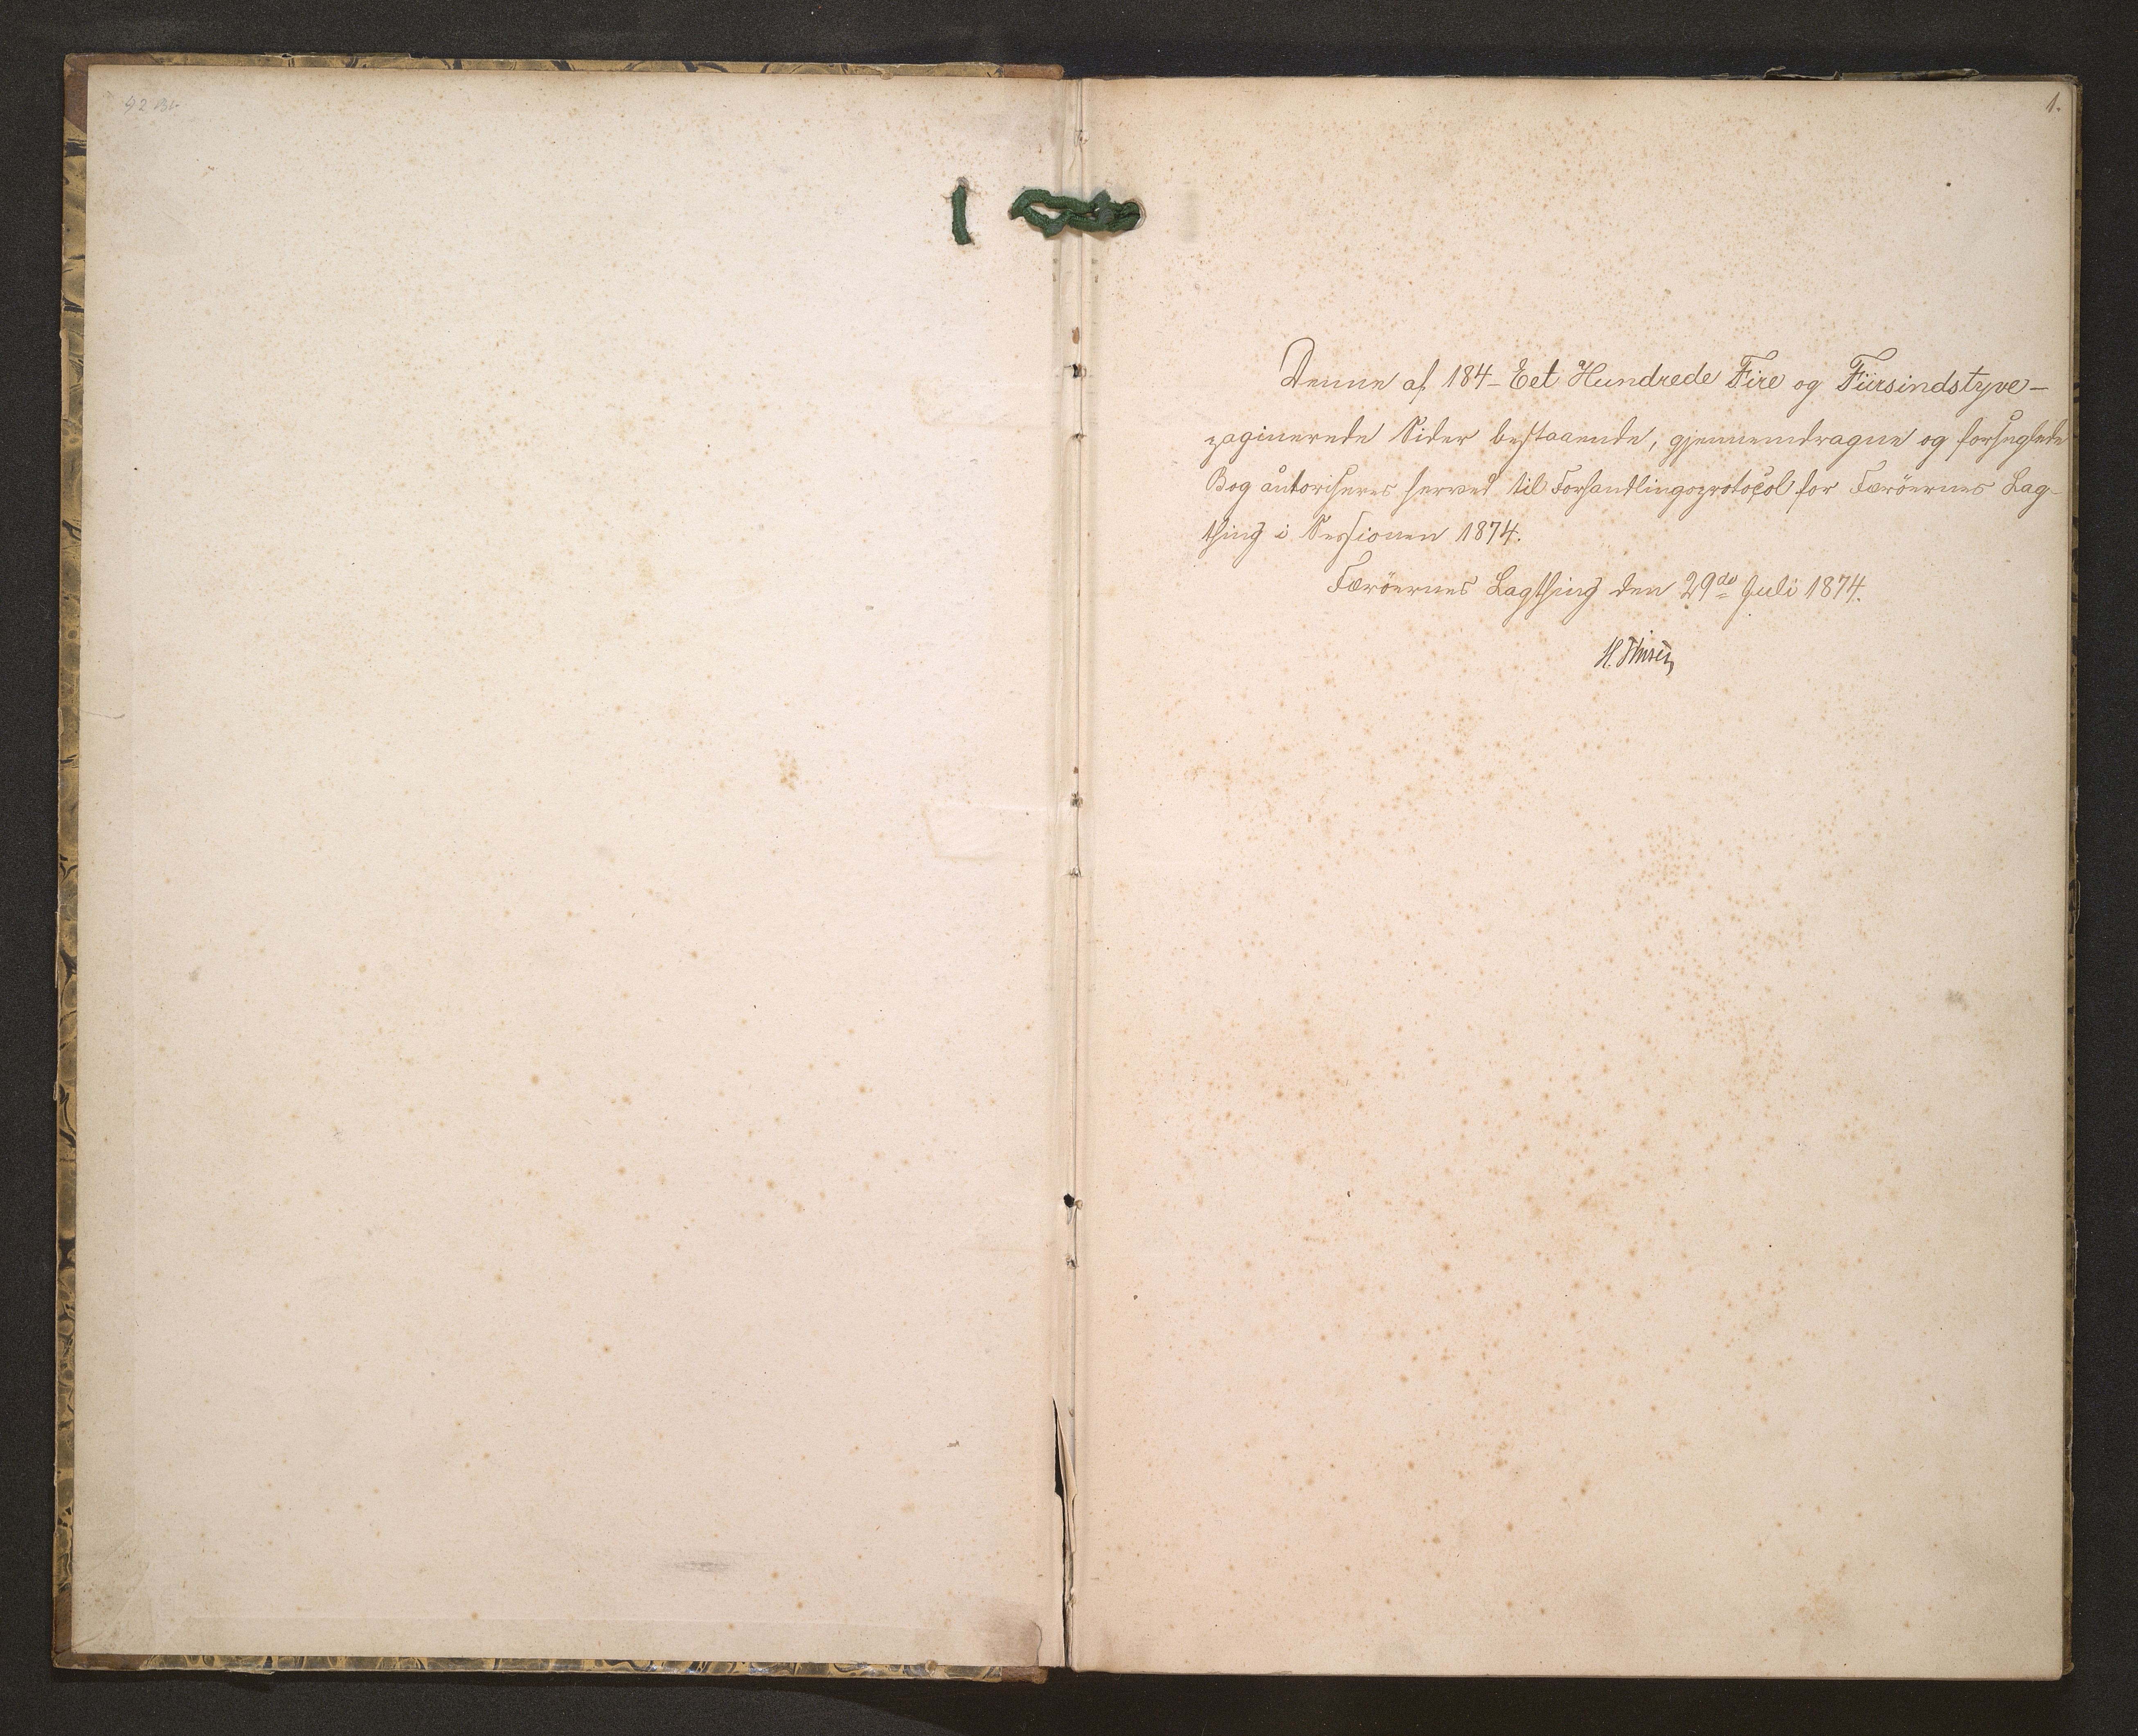 1.
Denne af 184 - Eet Hundrede Fire og Fiirsindstyve -
paginerede Sider bestaaende, gjennemdragne og forseglede
Bog autoriseres herved til Forhandlingsprotocol for Færöernes Lag-
thing i Sessionen 1874.
Færöernes Lagthing den 29de Juli 1874.
H.